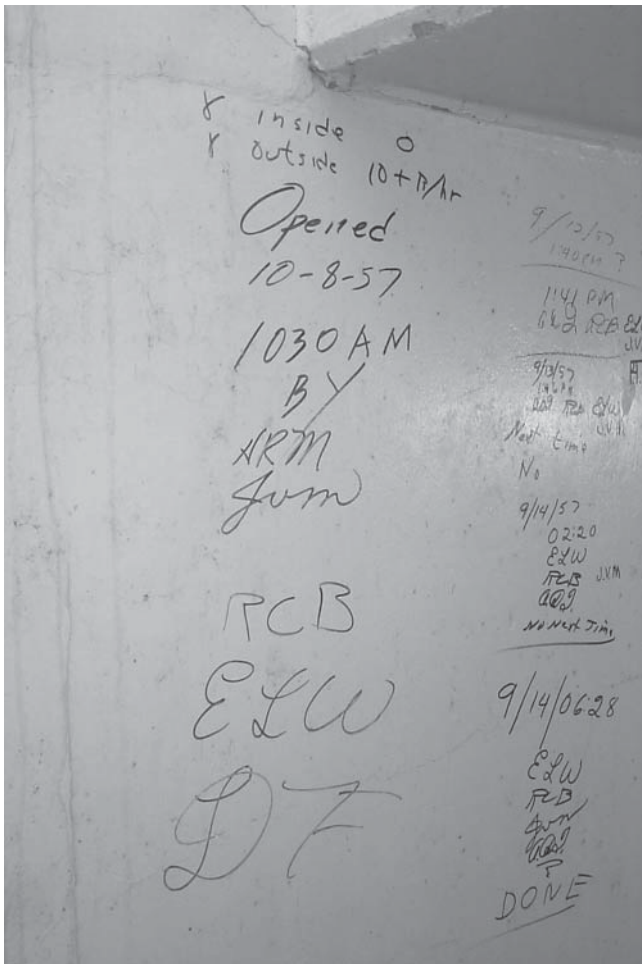 γ inside 0
γ outside 10+R/hr
Opened
10-8-57
1030 AM
BY
ARM
Jvm
RCB
ELW
DF
9/12/57
1:41 PM
RCB
9/13/57
RCB ELW
J.V.M.
Next time
No
9/14/57
02:20
ELW
RCB J.V.M
No Next Time
9/14/06:28
ELW
RCB
Jvm
DONE